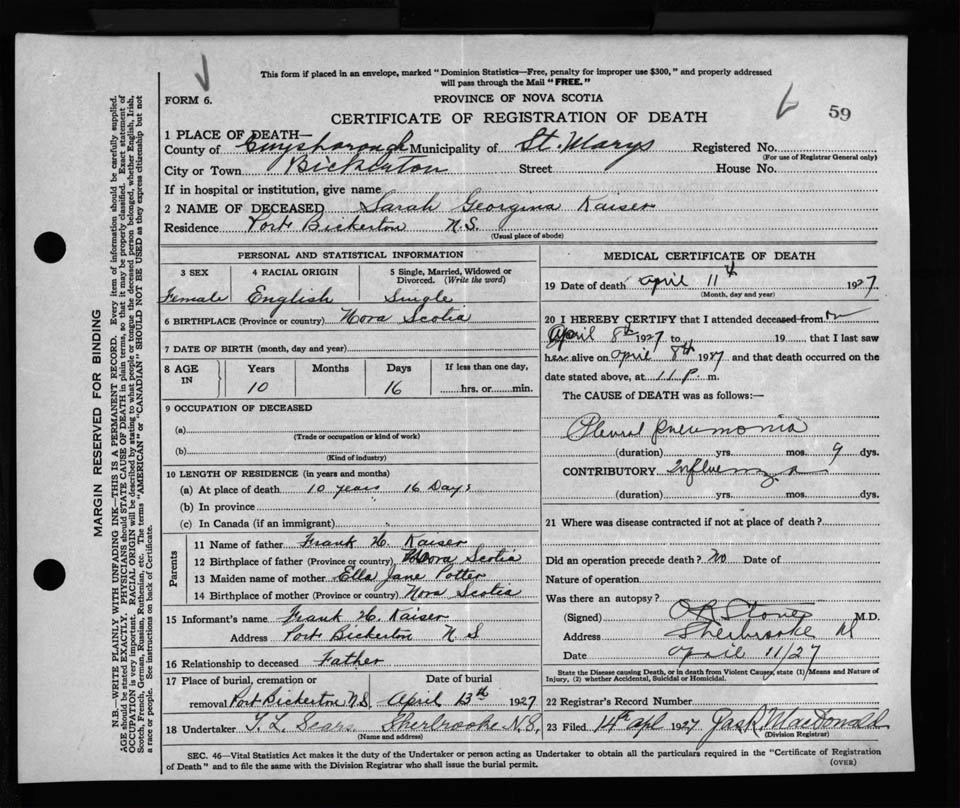 This form if placed in an envelope, marked "Dominion Statistics—Free, penalty for improper use $300," and properly addressed
will pass through the Mail "FREE."
FORM 6.
PROVINCE OF NOVA SCOTIA
6 59
CERTIFICATE OF REGISTRATION OF DEATH
1 PLACE OF DEATH—
County of Guysborough Municipality of St. Marys Registered No.
(For use of Registrar General only)
City or Town Bickerton Street House No.
If in hospital or institution, give name
2 NAME OF DECEASED Sarah Georgina Kaiser
Residence Port Bickerton N.S.
(Usual place of abode)
PERSONAL AND STATISTICAL INFORMATION
3 SEX 4 RACIAL ORIGIN 5 Single, Married, Widowed or
Divorced. (Write the word)
Female English Single
6 BIRTHPLACE (Province or country) Nova Scotia
7 DATE OF BIRTH (month, day and year)
8 AGE IN Years Months Days If less than one day,
10 16 hrs. or min.
9 OCCUPATION OF DECEASED
(a)
(Trade or occupation or kind of work)
(b)
(Kind of industry)
10 LENGTH OF RESIDENCE (in years and months)
(a) At place of death 10 years 16 Days
(b) In province
(c) In Canada (if an immigrant)
Parents
11 Name of father Frank H. Kaiser
12 Birthplace of father (Province or country) Nova Scotia
13 Maiden name of mother Ella Jane Potter
14 Birthplace of mother (Province or country) Nova Scotia
15 Informant's name Frank H. Kaiser
Address Port Bickerton N S
16 Relationship to deceased Father
17 Place of burial, cremation or Date of burial
removal Port Bickerton N.S. April 13th 1927
18 Undertaker T. L. Sears Sherbrooke N.S.,
(Name and address)
MEDICAL CERTIFICATE OF DEATH
19 Date of death April 11th 1927.
(Month, day and year)
20 I HEREBY CERTIFY that I attended deceased from on
April 8th 1927 to 19 that I last saw
her alive on April 8th 1927 and that death occurred on the
date stated above, at 11 P. m.
The CAUSE of DEATH was as follows:—
Pleural Pneumonia
(duration) yrs. mos. 9 dys.
CONTRIBUTORY Influenza
(duration) yrs. mos. dys.
21 Where was disease contracted if not at place of death?
Did an operation precede death? No Date of
Nature of operation
Was there an autopsy?
(Signed) Stone M.D.
Address Sherbrooke NS
Date April 11/27
State the Disease causing Death, or in death from Violent Causes, state (1) Means and Nature of
Injury, (2) whether Accidental, Suicidal or Homicidal.
22 Registrar's Record Number
23 Filed 14th apl 1927 Jas R. MacDonald
(Division Registrar)
SEC. 46—Vital Statistics Act makes it the duty of the Undertaker or person acting as Undertaker to obtain all the particulars required in the "Certificate of Registration
of Death" and to file the same with the Division Registrar who shall issue the burial permit.
(OVER)
MARGIN RESERVED FOR BINDING
N.B.—WRITE PLAINLY WITH UNFADING INK—THIS IS A PERMANENT RECORD. Every item of information should be carefully supplied.
AGE should be stated EXACTLY. PHYSICIANS should STATE CAUSE OF DEATH in plain terms, so that it may be properly classified. Exact statement of
OCCUPATION is very important. RACIAL ORIGIN will be described by stating to what people or tongue the deceased person belonged, whether English, Irish,
Scotch, French, German, Russian, Ruthenian, etc. The terms "AMERICAN" or "CANADIAN" SHOULD NOT BE USED as they express citizenship but not
a race or people. See instructions on back of Certificate.